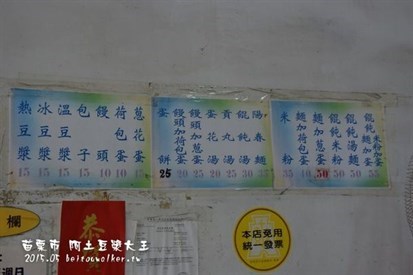 熱豆漿 15
冰豆漿 15
溫豆漿 15
包子
饅頭
荷包蛋
蔥花蛋 15
蛋餅 25
饅頭加荷包蛋 20
饅頭加蔥蛋
蛋花湯 20
貢丸湯
餛飩湯 30
陽春麵
米粉
麵加荷包蛋
麵加蔥蛋 50
餛飩米粉 50
餛飩湯麵 50
欄
恭
本店免用
統一發票
週日
苗栗市 陶土豆漿大王
2015.05 beitouwalker.tw